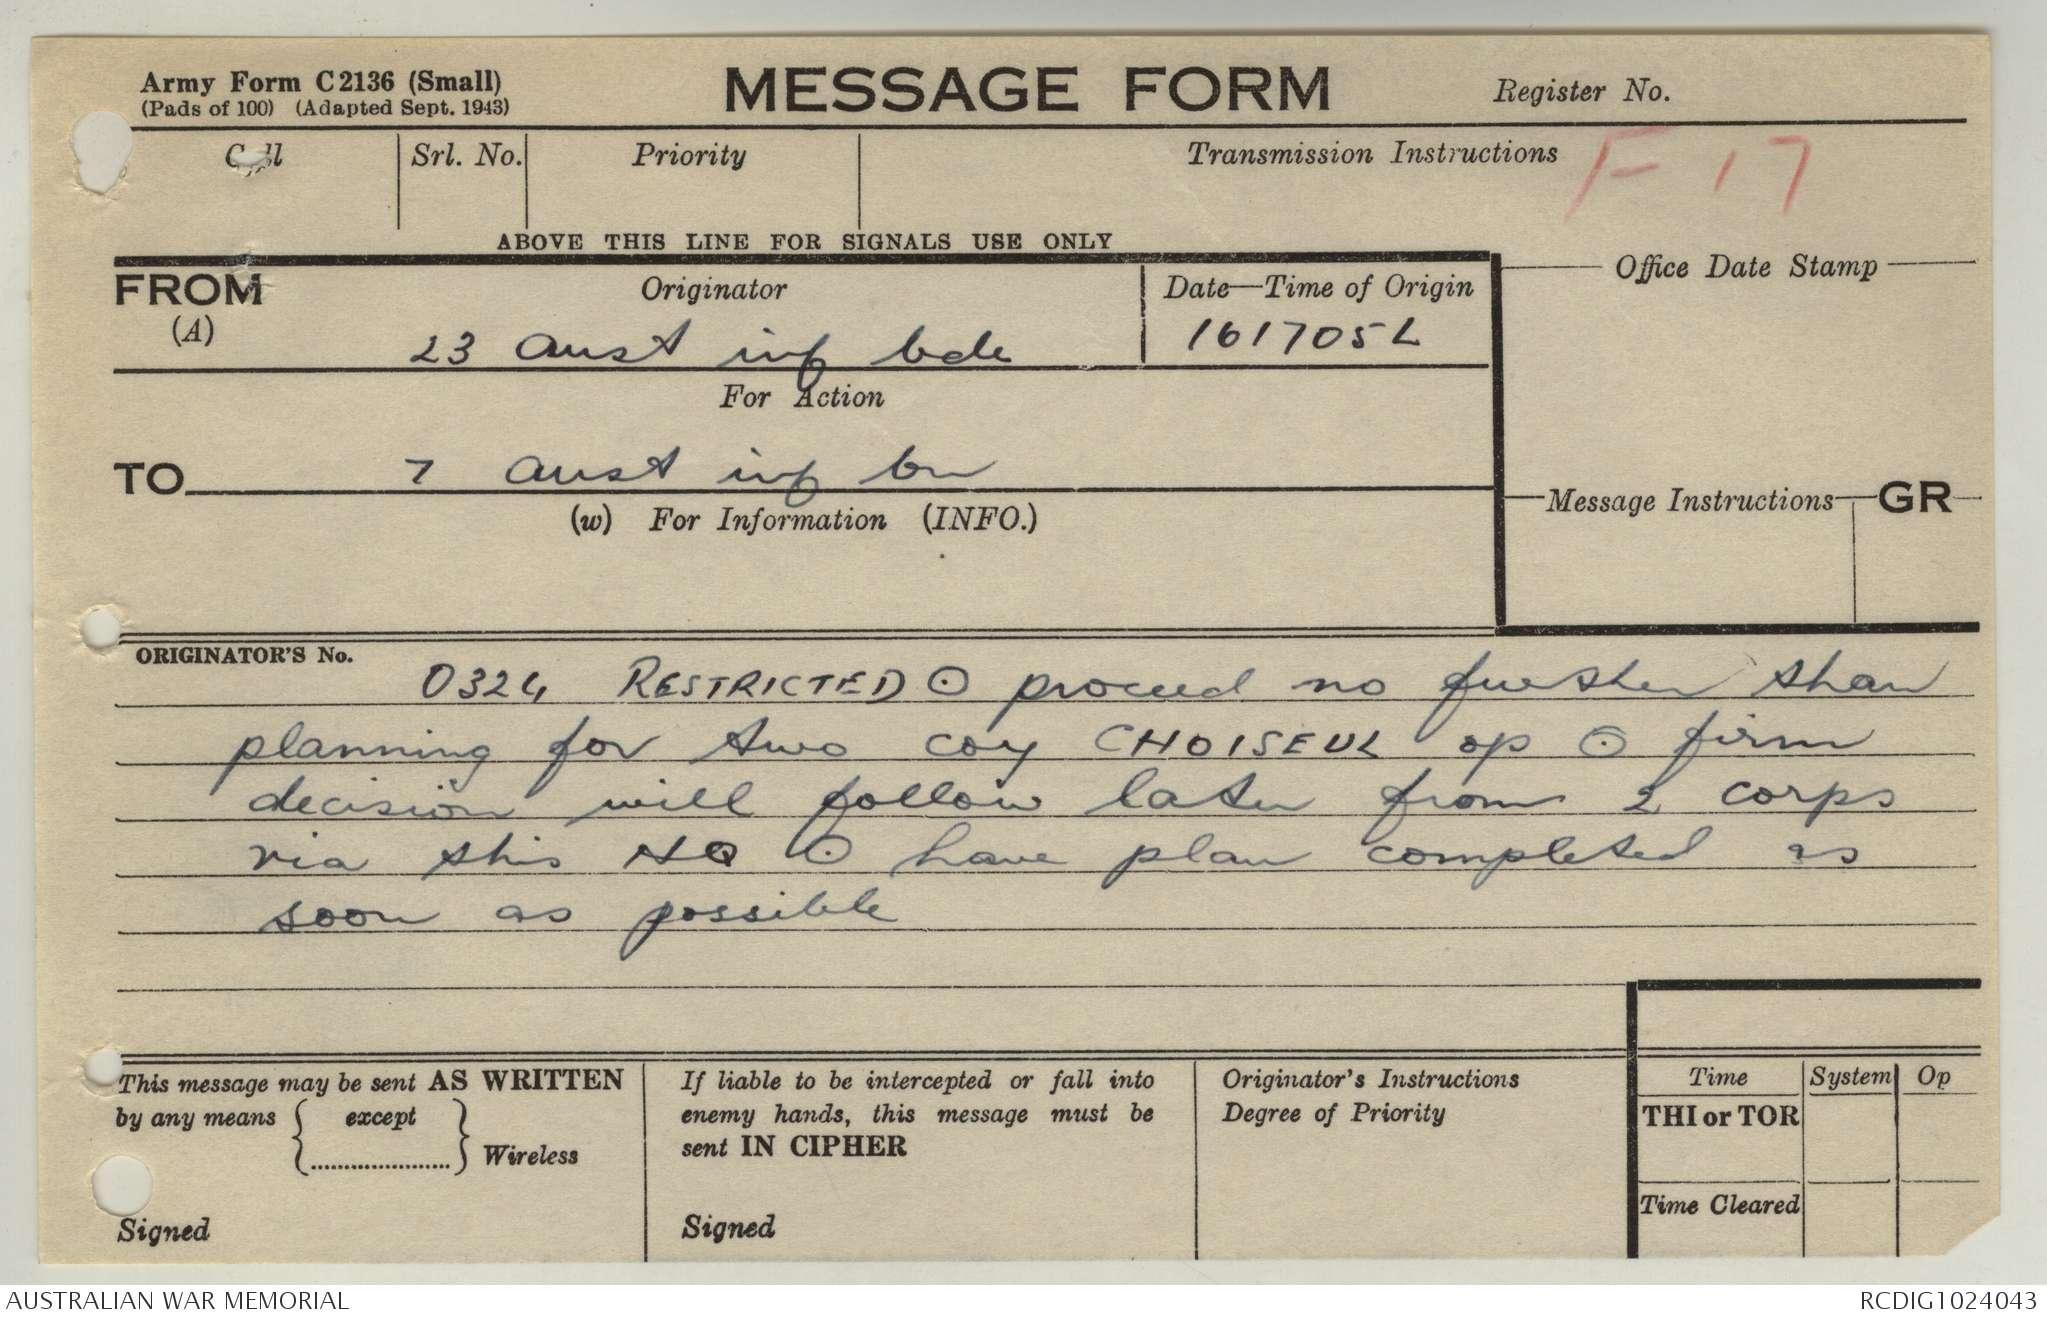 Army Form C2136 (Small)
(Pads of 100) (Adapted Sept. 1943)
MESSAGE FORM
Register No.
Call
Srl. No.
Priority
Transmission Instructions
F 17
ABOVE THIS LINE FOR SIGNALS USE ONLY
FROM
(A)
Originator
Date—Time of Origin
Office Date Stamp
23 Aust inf bde
161705L
For Action
TO
7 Aust inf bn
(w) For Information (INFO.)
Message Instructions
GR
ORIGINATOR'S No.
0324 RESTRICTED ⊙ proceed no further than
planning for two coy CHOISEUL op ⊙ firm
decision will follow later from 2 corps
via this HQ ⊙ have plan completed as
soon as possible
This message may be sent AS WRITTEN
by any means { except
..................... } Wireless
Signed
If liable to be intercepted or fall into
enemy hands, this message must be
sent IN CIPHER
Signed
Originator's Instructions
Degree of Priority
Time
System
Op
THI or TOR
Time Cleared
AUSTRALIAN WAR MEMORIAL
RCDIG1024043